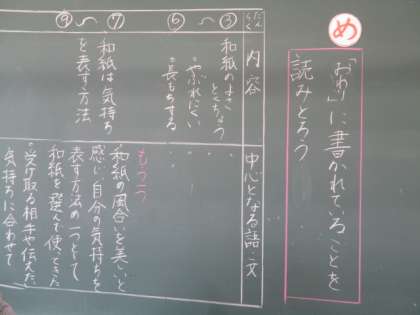 め
「おわり」に書かれていることを
読みとろう
だんらく
内容
中心となる語・文
③〜⑥
和紙のよさ
とくちょう
・やぶれにくい
・長もちする
⑦〜⑨
和紙は気持ち
を表す方法
もう一つ
和紙の風合いを美しいと
感じ、自分の気持ちを
表す方法の一つとして
和紙を選んで使ってきた
・受け取る相手や伝えたい
気持ちに合わせて